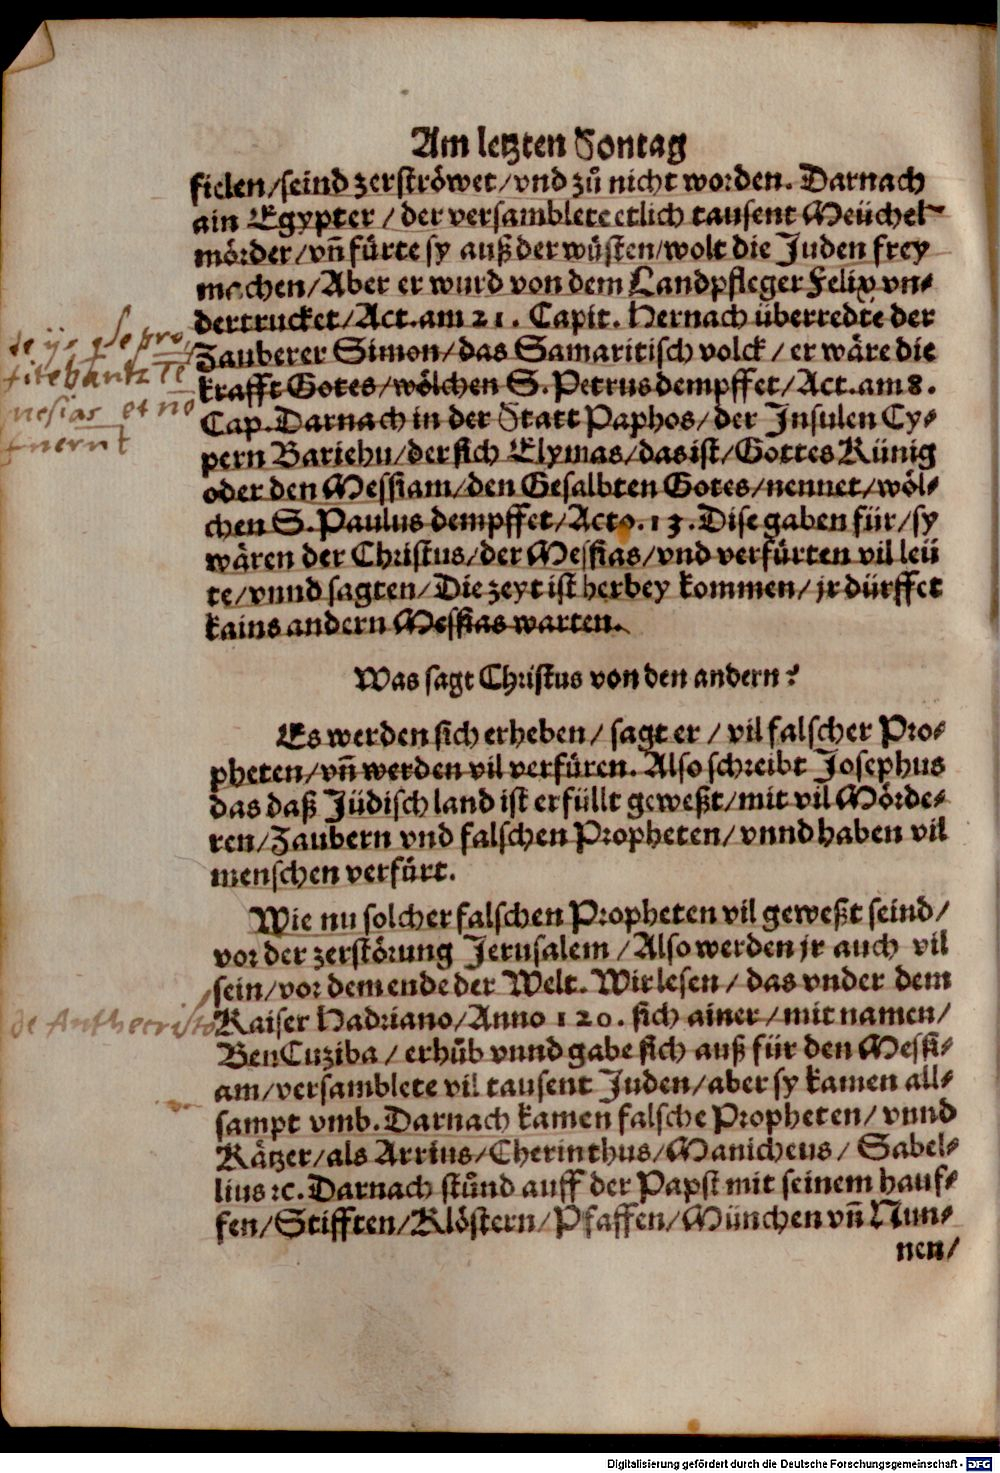 Am letzten Sontag
fielen/seind zerströwet/vnd zů nicht worden. Darnach
ain Egypter / der versamblete etlich tausent Meüchel-
mörder/vñ fürte sy auß der wüsten/wolt die Juden frey
machen/Aber er wurd von dem Landpfleger Felix vn-
dertrucket/Act.am 21. Capit. Hernach überredte der
Zauberer Simon/das Samaritisch volck / er wäre die
krafft Gotes/wölchen S. Petrus dempffet/Act.am 8.
Cap. Darnach in der Statt Paphos/der Insulen Cy-
pern Bariehu/der sich Elymas/das ist/Gottes Künig
oder den Messiam/den Gesalbten Gotes/nennet/wöl-
chen S. Paulus dempffet/Acto. 13. Dise gaben für/sy
wären der Christus/der Messias/vnd verfürten vil leü
te/vnnd sagten/Die zeyt ist herbey kommen/jr dürffet
kains andern Messias warten.
de ijs q se pro
fitebantz
mesias et nō
fuerūt
Was sagt Christus von den andern?
Es werden sich erheben/ sagt er / vil falscher Pro-
pheten/vñ werden vil verfüren. Also schreibt Josephus
das daß Jüdisch land ist erfüllt geweßt/mit vil Mörde-
ren/Zaubern vnd falschen Propheten/vnnd haben vil
menschen verfürt.
Wie nu solcher falschen Propheten vil geweßt seind/
vor der zerstörung Jerusalem /Also werden jr auch vil
sein/vor dem ende der Welt. Wir lesen/ das vnder dem
Kaiser Hadriano/Anno 120. sich ainer/mit namen/
BenCuziba / erhůb vnnd gabe sich auß für den Messi-
am/versamblete vil tausent Juden/aber sy kamen all-
sampt vmb. Darnach kamen falsche Propheten/vnnd
Kätzer/als Arrius/Cherinthus/Manicheus/ Sabel-
lius ꝛc. Darnach stůnd auff der Papst mit seinem hauf-
fen/Stifften/Klöstern/Pfaffen/München vñ Nun-
nen/
de Anthecristo
Digitalisierung gefördert durch die Deutsche Forschungsgemeinschaft - DFG